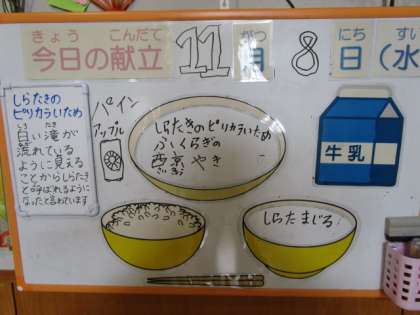 きょう こんだて がつ にち すい
今日の献立 11月 8日(水
しらたきの
ピリカラいため
しろ たき
白い滝が
流れている
ように見える
ことからしらたき
と呼ばれるように
なったと言われています
パイン
アップル
しらたきのピリカラいため
ふくらぎの
西京やき
さいきょう
牛乳
しらたまじる